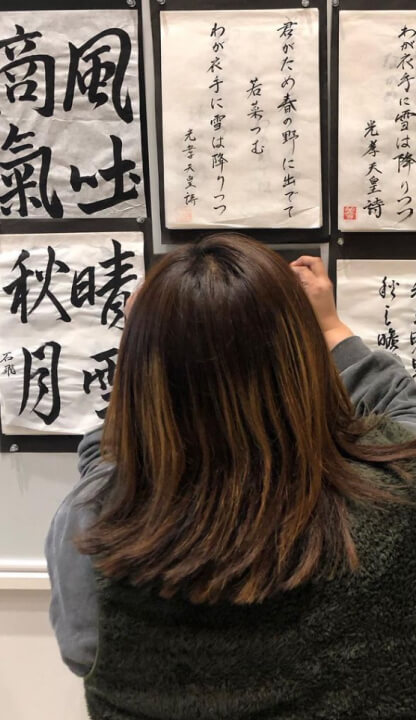 わが衣手に雪は降りつつ
光孝天皇詩
君がため春の野に出でて
若菜つむ
わが衣手に雪は降りつつ
光孝天皇詩
風吐
商氣
晴雪
秋月